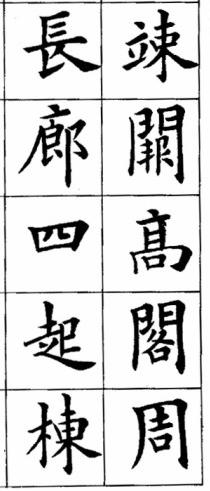 竦闕髙閣周
長廊四起棟